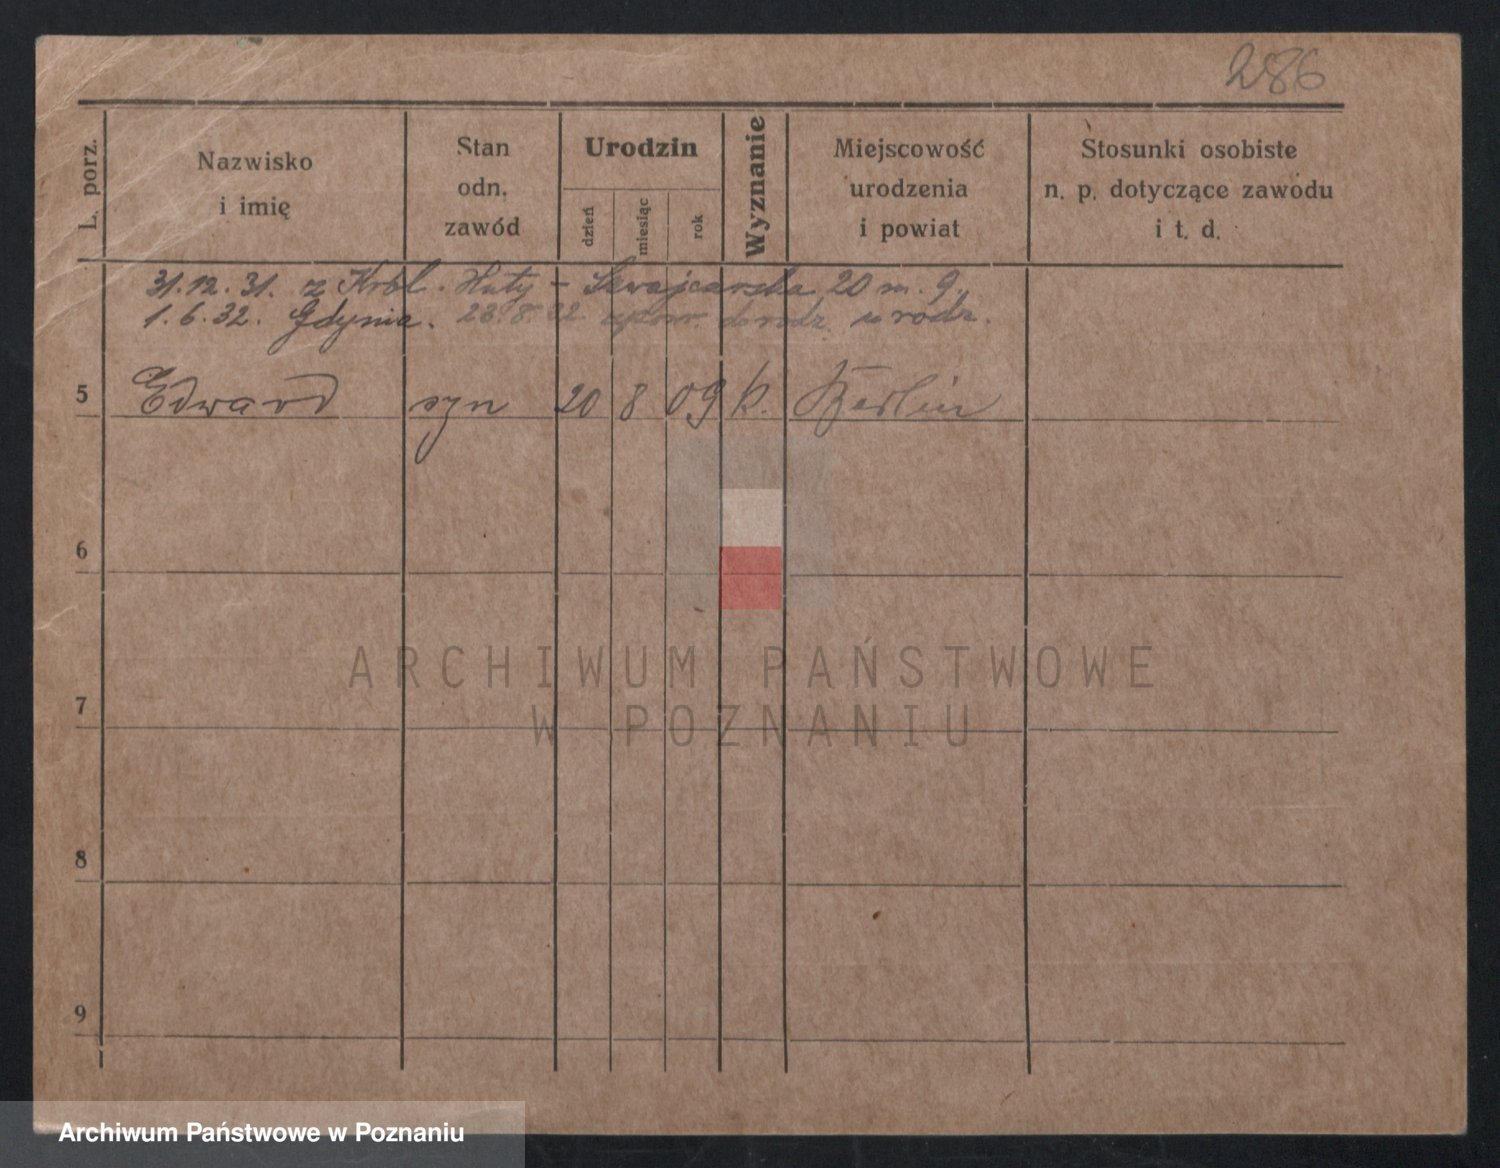 286
L. porz.
Nazwisko
i imię
Stan
odn.
zawód
Urodzin
dzień
miesiąc
rok
Wyznanie
Miejscowość
urodzenia
i powiat
Stosunki osobiste
n. p. dotyczące zawodu
i t. d.
31.12.31. z Krbl. Huty - Szwajcarska 20 m. 9.
1.6.32. Gdynia. 23.8.32 rodz.
5 Edward syn 20 8 09 k. Berlin
6
7
8
9
ARCHIWUM PAŃSTWOWE
W POZNANIU
Archiwum Państwowe w Poznaniu